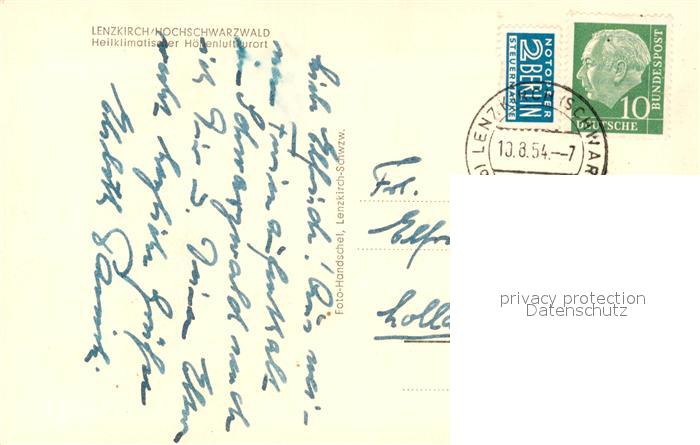 LENZKIRCH/HOCHSCHWARZWALD
Heilklimatischer Höhenluftkurort
Liebe Elfriede! Aus mei-
nem Ferienaufenthalt
im Schwarzwald sende
ich Dir u. Deinen Eltern
recht herzliche Grüße
Foto-Handschel, Lenzkirch-Schwzw.
NOTOPFER
2 BERLIN
STEUERMARKE
DEUTSCHE
BUNDESPOST
10
LENZKIRCH (SCHWAR
10.8.54.--7
Frl.
Elfr
Lolla
privacy protection
Datenschutz